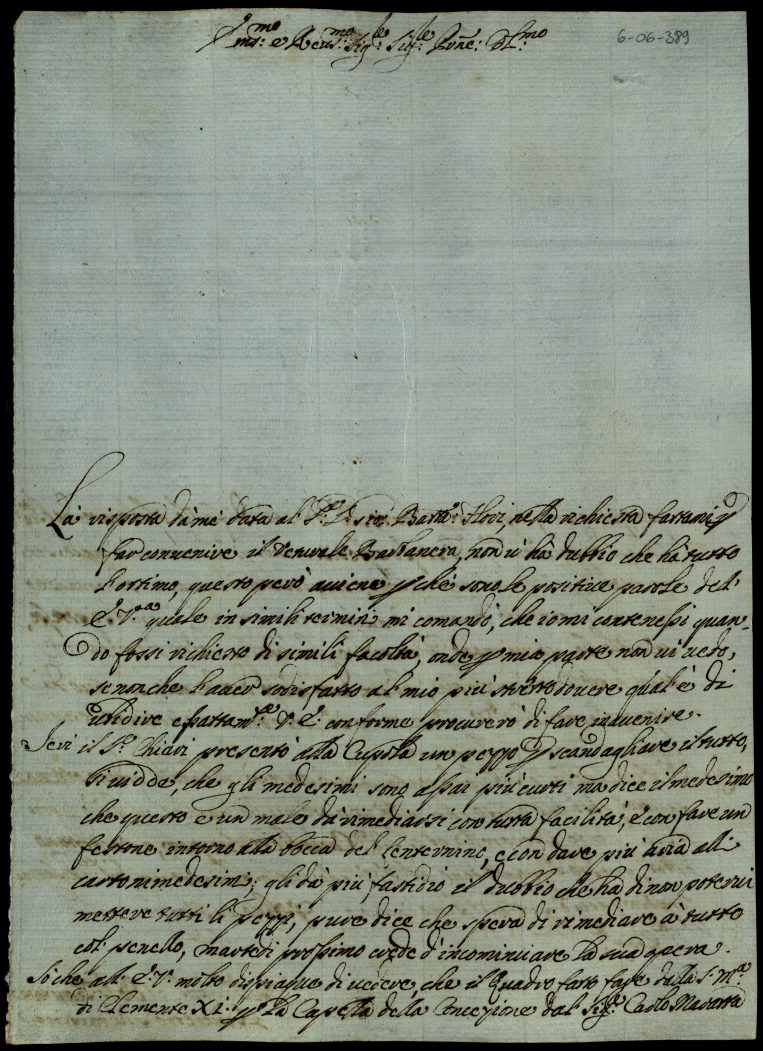 E.mo e R.mo Sig.re Sig.re P.rone Col.mo
6-06-389
La risposta dà me data al Sr. Bart.o nella richiesta fattami p
far convenire il Barbanera, non vi hà dubbio che hà tutto
l'ottimo, questo però aviene p che sono le positive parole del
E. V. quale in simili termini mi comandò, che io mi contenessi quan-
do fossi richiesto di simili facoltà, onde p mia parte non vi vedo,
se non che haver sodisfatto al mio più stretto dovere qual'è di
ubidire esattam.te V. E. conforme procurerò di fare in avenire.
Ieri il Sr. Chiari presentò alla Cupola un pezzo p scandagliare il tutto,
si vidde, che gli medesimi sono assai più curti ma dice il medesimo
che questo è un male dà rimediarsi con tutta facilità, e con fare un
festone intorno alla bocca del lenternino, e con dare più aria alli
cartoni medesimi; gli dà più fastidio il dubbio che hà di non potervi
mettere tutti li pezzi, pure dice che spera di rimediare à tutto
col' penello, martedi prossimo crede d'incominciare la sua opera.
Sò che all' E. V. molto dispiaque di vedere, che il Quadro fatto fare dalla S. M.a
di Clemente XI. p la Capella della Concezione dal Sig.r Carlo Maratta